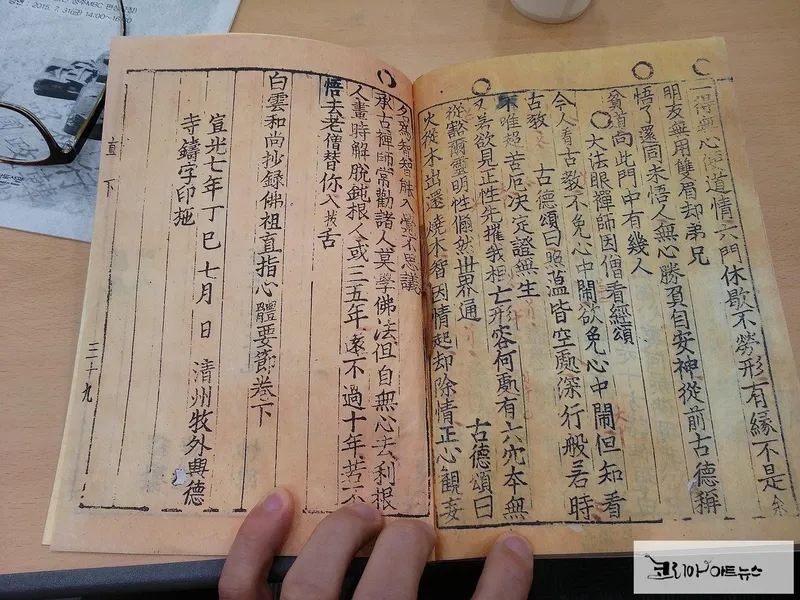 一得無心便道情六門休歇不勞形有緣不是余
朋友無用雙眉却弟兄
悟了還同未悟人無心勝負自安神從前古德稱
貧道向此門中有幾人
大法眼禪師因僧看經頌
今人看古教不免心中鬧欲免心中鬧但知看
古教 古德頌曰照蘊皆空處深行般若時
唯超苦厄決定證無生
又若欲見正性先摧我相亡形容何處有六穴本無
從豁爾靈明性翛然世界通 古德頌曰
火從木出還燒木智因情起却除情正心觀妄
智智 入 不思議
承古禪師常勸諸人莫學佛法但自無心去利根
人晝時解脫鈍根人或三五年遠不過十年若不
悟去老僧替你入拔舌
白雲和尚抄錄佛祖直指心體要節卷下
宣光七年丁巳七月 日 清州牧外興德
寺鑄字印施
直下
三十九
2015. 7. 31(금) 14:00~16:00
코리아아트뉴스